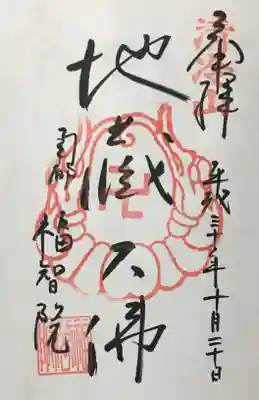 奉拝
平成三十年十月二十日
地蔵大佛
南都 福智院